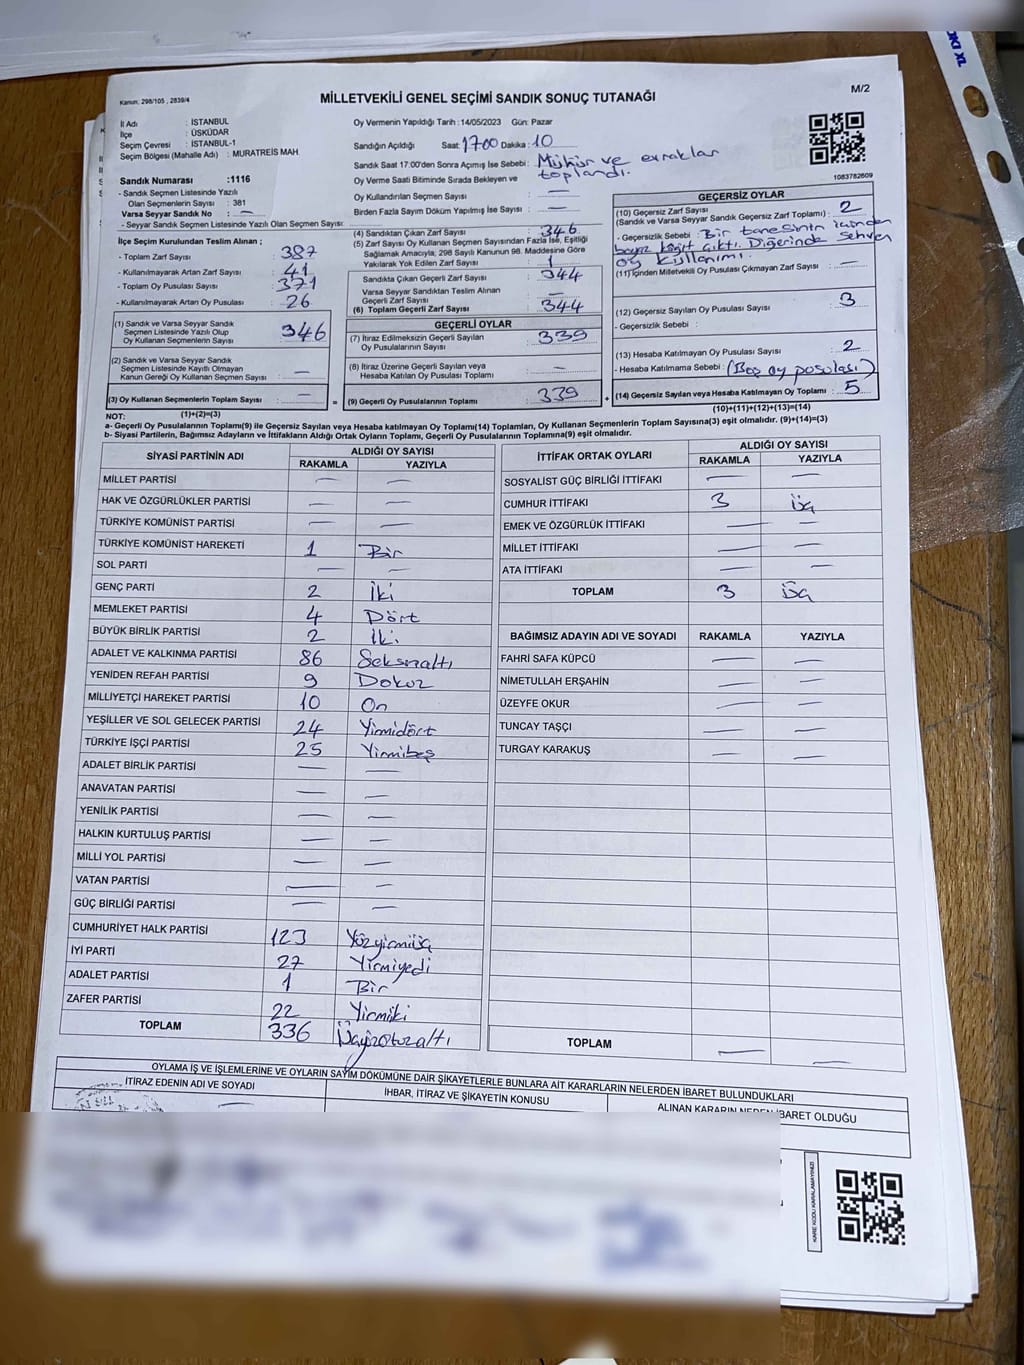 Kanun, 298/105 , 2839/4
MİLLETVEKİLİ GENEL SEÇİMİ SANDIK SONUÇ TUTANAĞI
M/2
İl Adı : İSTANBUL
İlçe : ÜSKÜDAR
Seçim Çevresi : İSTANBUL-1
Seçim Bölgesi (Mahalle Adı) : MURATREİS MAH
Sandık Numarası :1116
- Sandık Seçmen Listesinde Yazılı
Olan Seçmenlerin Sayısı : 381
Varsa Seyyar Sandık No : —
- Seyyar Sandık Seçmen Listesinde Yazılı Olan Seçmen Sayısı:
İlçe Seçim Kurulundan Teslim Alınan ;
- Toplam Zarf Sayısı : 387
- Kullanılmayarak Artan Zarf Sayısı : 41
- Toplam Oy Pusulası Sayısı : 371
- Kullanılmayarak Artan Oy Pusulası : 26
(1) Sandık ve Varsa Seyyar Sandık
Seçmen Listesinde Yazılı Olup
Oy Kullanan Seçmenlerin Sayısı : 346
(2) Sandık ve Varsa Seyyar Sandık
Seçmen Listesinde Kayıtlı Olmayan
Kanun Gereği Oy Kullanan Seçmen Sayısı : —
(3) Oy Kullanan Seçmenlerin Toplam Sayısı : —
(1)+(2)=(3)
Oy Vermenin Yapıldığı Tarih : 14/05/2023 Gün: Pazar
Sandığın Açıldığı Saat: 1700 Dakika : 10
Sandık Saat 17:00'den Sonra Açımış İse Sebebi : Mühür ve evraklar
toplandı.
Oy Verme Saati Bitiminde Sırada Bekleyen ve
Oy Kullandırılan Seçmen Sayısı : —
Birden Fazla Sayım Döküm Yapılmış İse Sayısı : —
(4) Sandıktan Çıkan Zarf Sayısı : 346
(5) Zarf Sayısı Oy Kullanan Seçmen Sayısından Fazla İse, Eşitliği
Sağlamak Amacıyla, 298 Sayılı Kanunun 98. Maddesine Göre
Yakılarak Yok Edilen Zarf Sayısı :
Sandıkta Çıkan Geçerli Zarf Sayısı : 344
Varsa Seyyar Sandıktan Teslim Alınan
Geçerli Zarf Sayısı : —
(6) Toplam Geçerli Zarf Sayısı : 344
GEÇERLİ OYLAR
(7) İtiraz Edilmeksizin Geçerli Sayılan
Oy Pusulalarının Sayısı : 339
(8) İtiraz Üzerine Geçerli Sayılan veya
Hesaba Katılan Oy Pusulası Toplamı : —
= (9) Geçerli Oy Pusulalarının Toplamı : 339
1083782609
GEÇERSİZ OYLAR
(10) Geçersiz Zarf Sayısı
(Sandık ve Varsa Seyyar Sandık Geçersiz Zarf Toplamı) : 2
- Geçersizlik Sebebi : Bir tanesinin içinden
beyaz kağıt çıktı. Diğerinde sehven
oy kullanımı.
(11) İçinden Milletvekili Oy Pusulası Çıkmayan Zarf Sayısı : —
(12) Geçersiz Sayılan Oy Pusulası Sayısı : 3
- Geçersizlik Sebebi :
(13) Hesaba Katılmayan Oy Pusulası Sayısı : 2
- Hesaba Katılmama Sebebi : (Boş oy pusulası)
+ (14) Geçersiz Sayılan veya Hesaba Katılmayan Oy Toplamı : 5
(10)+(11)+(12)+(13)=(14)
NOT:
a- Geçerli Oy Pusulalarının Toplamı(9) ile Geçersiz Sayılan veya Hesaba katılmayan Oy Toplamı(14) Toplamları, Oy Kullanan Seçmenlerin Toplam Sayısına(3) eşit olmalıdır. (9)+(14)=(3)
b- Siyasi Partilerin, Bağımsız Adayların ve İttifakların Aldığı Ortak Oyların Toplamı, Geçerli Oy Pusulalarının Toplamına(9) eşit olmalıdır.
SİYASİ PARTİNİN ADI ALDIĞI OY SAYISI
RAKAMLA YAZIYLA
MİLLET PARTİSİ — —
HAK VE ÖZGÜRLÜKLER PARTİSİ — —
TÜRKİYE KOMÜNİST PARTİSİ — —
TÜRKİYE KOMÜNİST HAREKETİ 1 Bir
SOL PARTİ — —
GENÇ PARTİ 2 İki
MEMLEKET PARTİSİ 4 Dört
BÜYÜK BİRLİK PARTİSİ 2 İki
ADALET VE KALKINMA PARTİSİ 86 Seksenaltı
YENİDEN REFAH PARTİSİ 9 Dokuz
MİLLİYETÇİ HAREKET PARTİSİ 10 On
YEŞİLLER VE SOL GELECEK PARTİSİ 24 Yirmidört
TÜRKİYE İŞÇİ PARTİSİ 25 Yirmibeş
ADALET BİRLİK PARTİSİ — —
ANAVATAN PARTİSİ — —
YENİLİK PARTİSİ — —
HALKIN KURTULUŞ PARTİSİ — —
MİLLİ YOL PARTİSİ — —
VATAN PARTİSİ — —
GÜÇ BİRLİĞİ PARTİSİ — —
CUMHURİYET HALK PARTİSİ 123 Yüzyirmiüç
İYİ PARTİ 27 Yirmiyedi
ADALET PARTİSİ 1 Bir
ZAFER PARTİSİ 22 Yirmiki
TOPLAM 336 Üçyüzotuzaltı
İTTİFAK ORTAK OYLARI ALDIĞI OY SAYISI
RAKAMLA YAZIYLA
SOSYALİST GÜÇ BİRLİĞİ İTTİFAKI — —
CUMHUR İTTİFAKI 3 üç
EMEK VE ÖZGÜRLÜK İTTİFAKI — —
MİLLET İTTİFAKI — —
ATA İTTİFAKI — —
TOPLAM 3 üç
BAĞIMSIZ ADAYIN ADI VE SOYADI RAKAMLA YAZIYLA
FAHRİ SAFA KÜPCÜ — —
NİMETULLAH ERŞAHİN — —
ÜZEYFE OKUR — —
TUNCAY TAŞÇI — —
TURGAY KARAKUŞ — —
TOPLAM — —
OYLAMA İŞ VE İŞLEMLERİNE VE OYLARIN SAYIM DÖKÜMÜNE DAİR ŞİKAYETLERLE BUNLARA AİT KARARLARIN NELERDEN İBARET BULUNDUKLARI
İTİRAZ EDENİN ADI VE SOYADI
İHBAR, İTİRAZ VE ŞİKAYETİN KONUSU
ALINAN KARARIN NEDEN İBARET OLDUĞU
KARE KODU KARALAMAYINIZ!